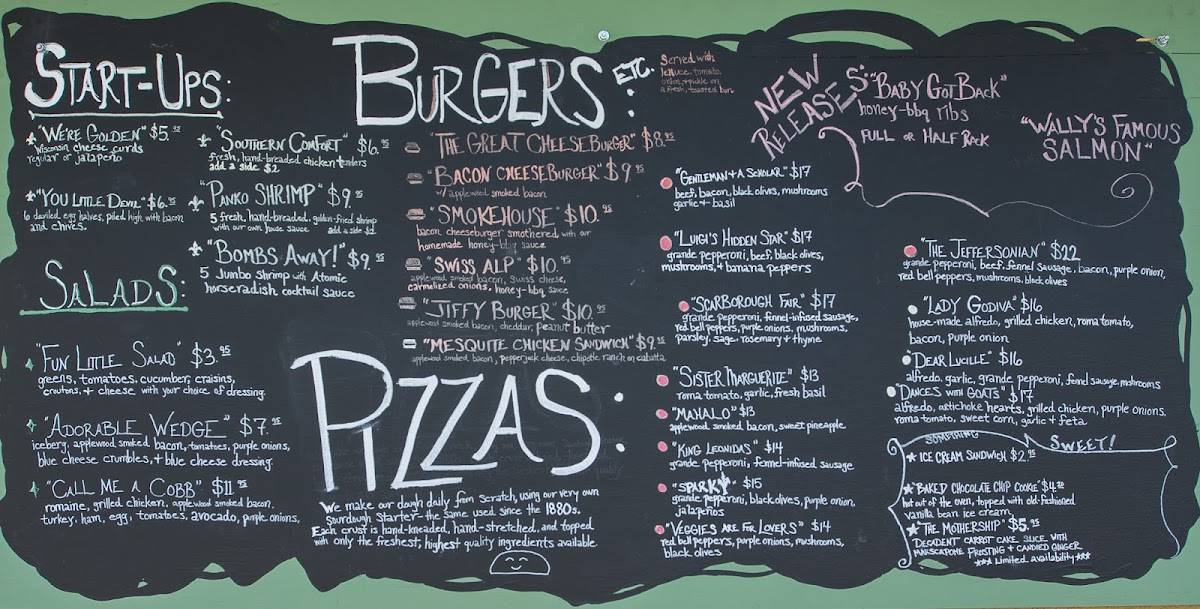 START-UPS:
"WE'RE GOLDEN" $5.95
Wisconsin cheese curds
regular or jalapeno
"YOU LITTLE DEVIL" $6.95
6 deviled egg halves, piled high with bacon
and chives.
"SOUTHERN COMFORT" $6.95
fresh, hand-breaded chicken tenders
add a side $2
"PANKO SHRIMP" $9.95
5 fresh, hand-breaded, golden-fried shrimp
with our own house sauce add a side $2
"BOMBS AWAY!" $9.95
5 Jumbo shrimp with Atomic
horseradish cocktail sauce
SALADS:
"FUN LITTLE SALAD" $3.95
greens, tomatoes, cucumber, craisins,
croutons, + cheese with your choice of dressing.
"ADORABLE WEDGE" $7.95
iceberg, applewood smoked bacon, tomatoes, purple onions,
blue cheese crumbles, + blue cheese dressing.
"CALL ME A COBB" $11.95
romaine, grilled chicken, applewood smoked bacon,
turkey, ham, egg, tomatoes, avocado, purple onions,
BURGERS ETC.:
Served with
lettuce, tomato,
onion, + pickle on
a fresh, toasted bun.
"THE GREAT CHEESEBURGER" $8.95
"BACON CHEESEBURGER" $9.95
w/ applewood smoked bacon
"SMOKEHOUSE" $10.95
bacon cheeseburger smothered with our
homemade honey-bbq sauce
"SWISS ALP" $10.95
applewood smoked bacon, swiss cheese,
carmelized onions, honey-bbq sauce
"JIFFY BURGER" $10.95
applewood smoked bacon, cheddar, peanut butter
"MESQUITE CHICKEN SANDWICH" $9.95
applewood smoked bacon, pepperjack cheese, chipotle ranch on ciabatta
PIZZAS:
We make our dough daily from scratch, using our very own
Sourdough Starter - the same used since the 1880s.
Each crust is hand-kneaded, hand-stretched, and topped
with only the freshest, highest quality ingredients available.
NEW
RELEASES:
"BABY GOT BACK"
honey-bbq ribs
FULL or HALF RACK
"WALLY'S FAMOUS
SALMON"
"GENTLEMAN + A SCHOLAR" $17
beef, bacon, black olives, mushrooms
garlic + basil
"LUIGI'S HIDDEN STAR" $17
grande pepperoni, beef, black olives,
mushrooms, + banana peppers
"SCARBOROUGH FAIR" $17
grande pepperoni, fennel-infused sausage,
red bell peppers, purple onions, mushrooms,
parsley, sage, rosemary + thyme
"SISTER MARGUERITE" $13
roma tomato, garlic, fresh basil
"MAHALO" $13
applewood smoked bacon, sweet pineapple
"KING LEONIDAS" $14
grande pepperoni, fennel-infused sausage
"SPARKY" $15
grande pepperoni, black olives, purple onion,
jalapeños
"VEGGIES ARE FOR LOVERS" $14
red bell peppers, purple onions, mushrooms,
black olives
"THE JEFFERSONIAN" $22
grande pepperoni, beef, fennel sausage, bacon, purple onion,
red bell peppers, mushrooms, black olives
"LADY GODIVA" $16
house-made alfredo, grilled chicken, roma tomato,
bacon, purple onion
"DEAR LUCILLE" $16
alfredo, garlic, grande pepperoni, fennel sausage, mushrooms
"DANCES WITH GOATS" $17
alfredo, artichoke hearts, grilled chicken, purple onions,
roma tomato, sweet corn, garlic + feta
SOMETHING SWEET!
ICE CREAM SANDWICH $2.95
"BAKED CHOCOLATE CHIP COOKIE" $4.50
hot out of the oven, topped with old-fashioned
vanilla bean ice cream
"THE MOTHERSHIP" $5.95
DECADENT CARROT CAKE SLICE WITH
MARSCAPONE FROSTING + CANDIED GINGER
*** Limited availability ***